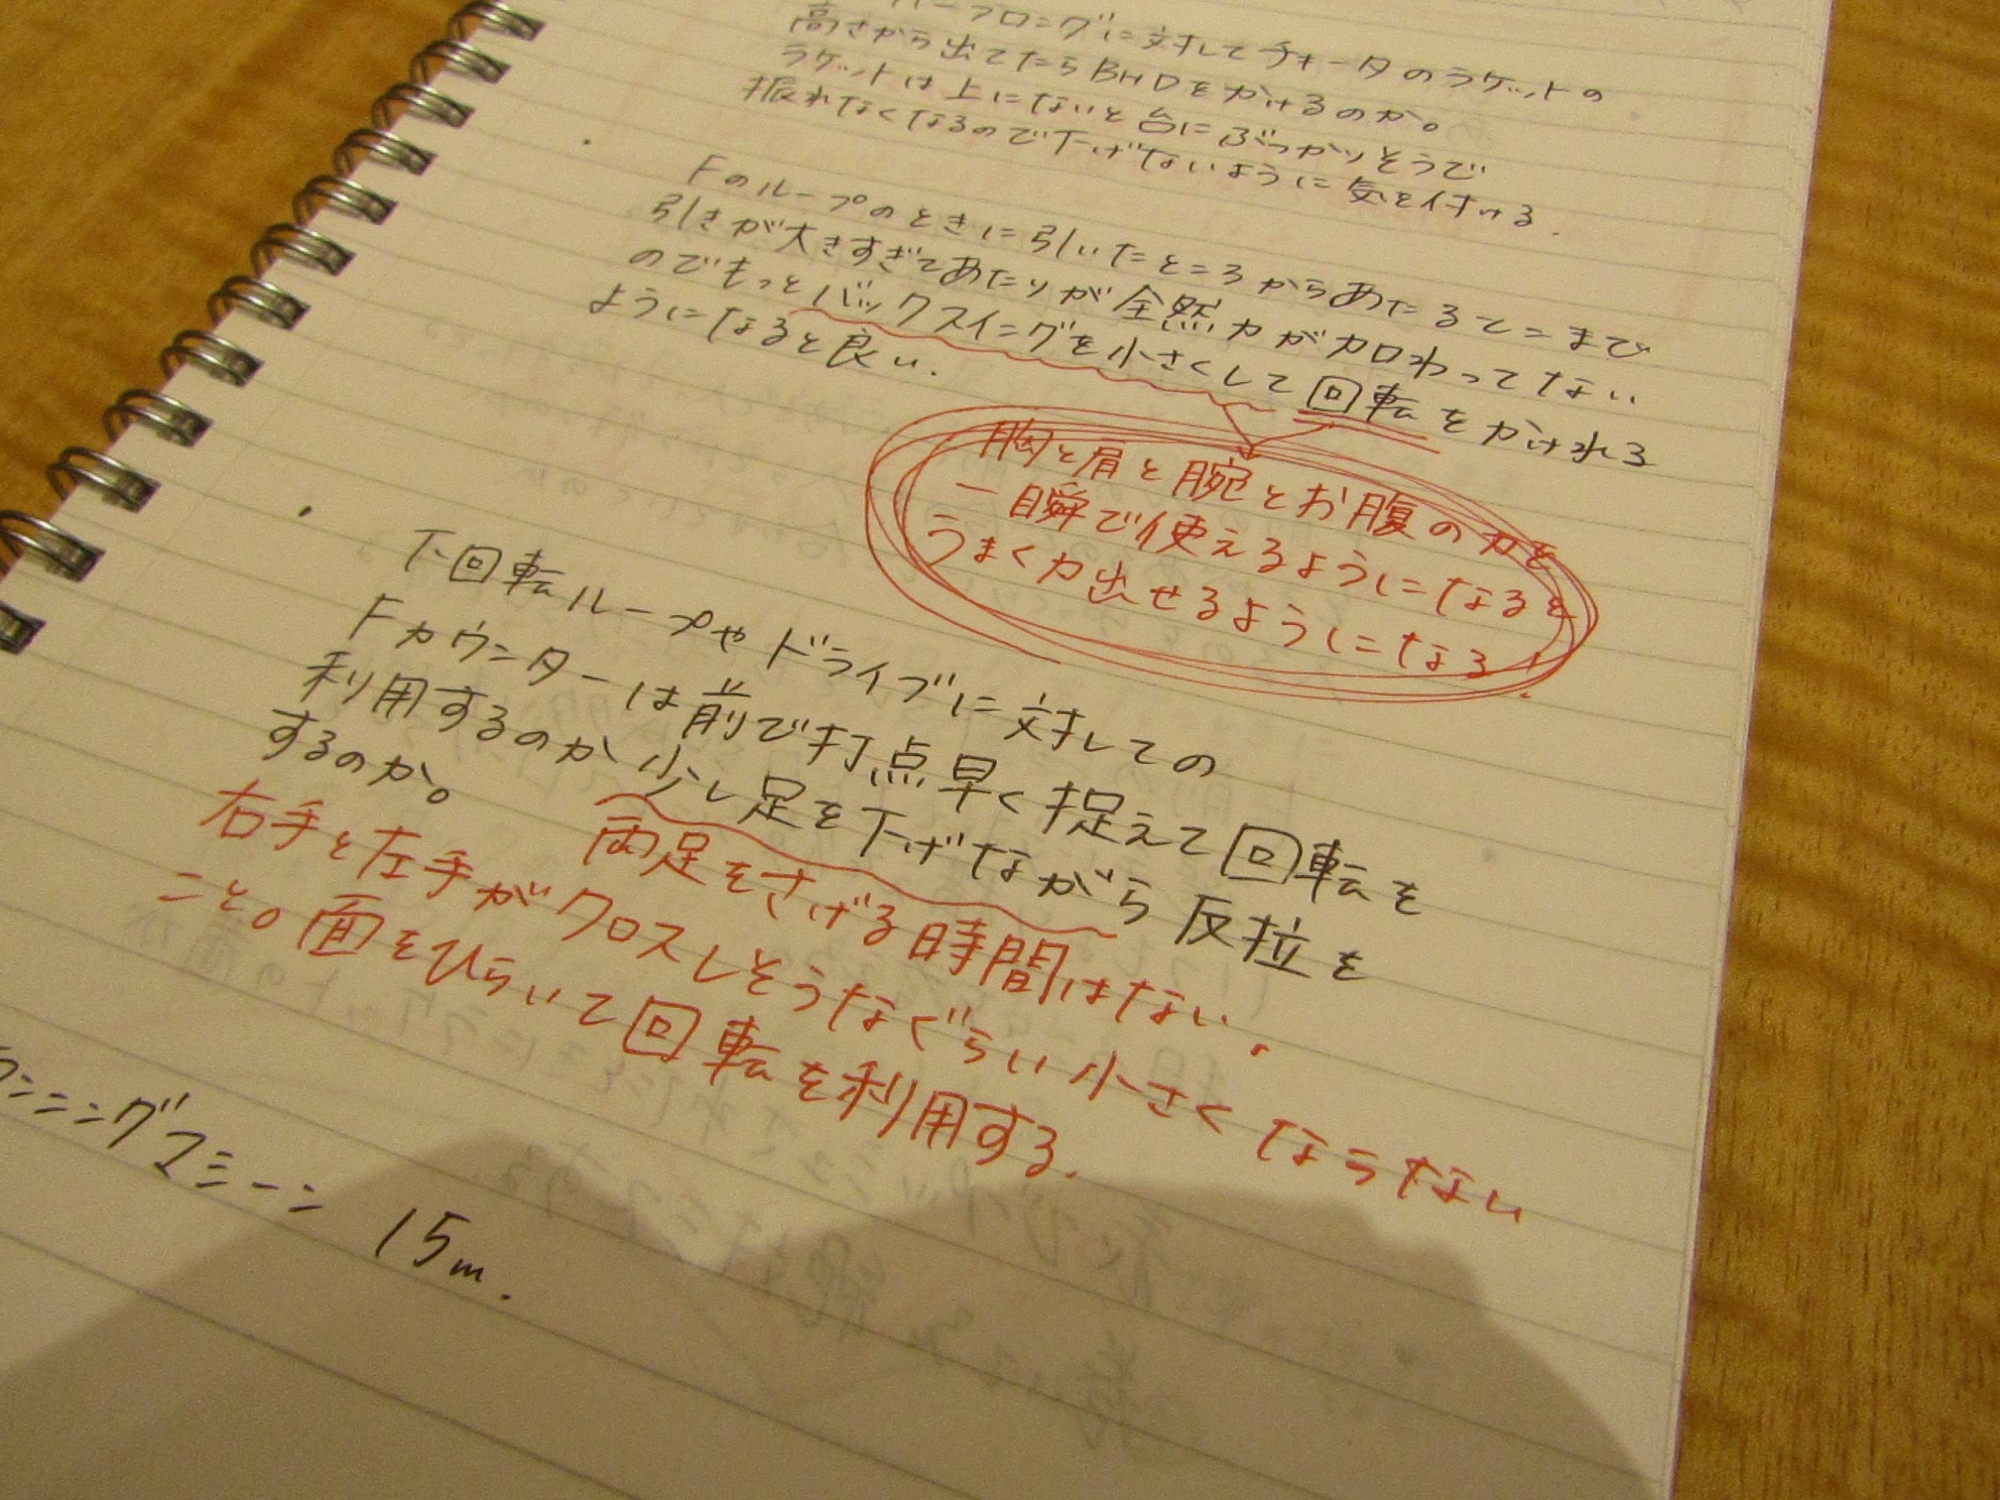 ーフロングに対してチキータのラケットの
高さから出てたらBHDをかけるのか。
ラケットは上にないと台にぶつかりそうで
振れなくなるので下げないように気を付ける.
・Fのループのときに引いたところからあたるとこまで
引きが大きすぎてあたりが全然力が加わってない
のでもっとバックスイングを小さくして回転をかけれる
ようになると良い.
胸と肩と腕とお腹の力を
一瞬で使えるようになると
うまく力出せるようになる!
・下回転ループやドライブに対しての
Fカウンターは前で打点早く捉えて回転を
利用するのか少し足を下げながら反拉を
するのか。
両足をさげる時間はない.
右手と左手がクロスしそうなぐらい小さくならない
こと。面をひらいて回転を利用する.
ンニングマシーン 15m.